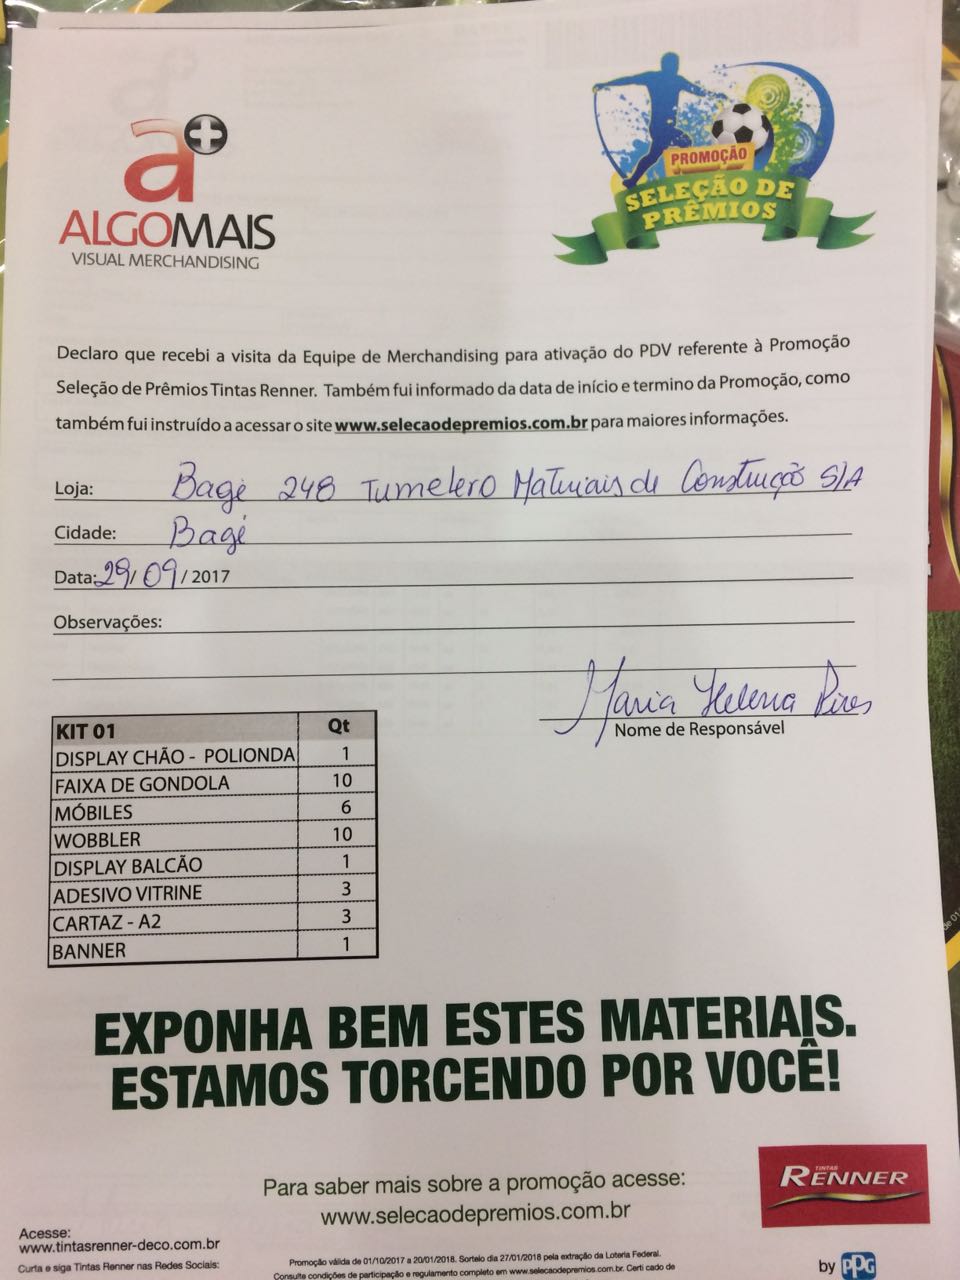 a+
ALGOMAIS
VISUAL MERCHANDISING
PROMOÇÃO
SELEÇÃO DE
PRÊMIOS
Declaro que recebi a visita da Equipe de Merchandising para ativação do PDV referente à Promoção
Seleção de Prêmios Tintas Renner. Também fui informado da data de início e termino da Promoção, como
também fui instruído a acessar o site www.selecaodepremios.com.br para maiores informações.
Loja: Bagé 248 Tumelero Materiais de Construção S/A
Cidade: Bagé
Data: 29/09/2017
Observações:
Maria Helena Pires
Nome de Responsável
KIT 01 Qt
DISPLAY CHÃO - POLIONDA 1
FAIXA DE GONDOLA 10
MÓBILES 6
WOBBLER 10
DISPLAY BALCÃO 1
ADESIVO VITRINE 3
CARTAZ - A2 3
BANNER 1
EXPONHA BEM ESTES MATERIAIS.
ESTAMOS TORCENDO POR VOCÊ!
Para saber mais sobre a promoção acesse:
www.selecaodepremios.com.br
TINTAS
RENNER
Acesse:
www.tintasrenner-deco.com.br
Curta e siga Tintas Renner nas Redes Sociais:
Promoção válida de 01/10/2017 a 20/01/2018. Sorteio dia 27/01/2018 pela extração da Loteria Federal.
Consulte condições de participação e regulamento completo em www.selecaodepremios.com.br. Certi cado de
by PPG